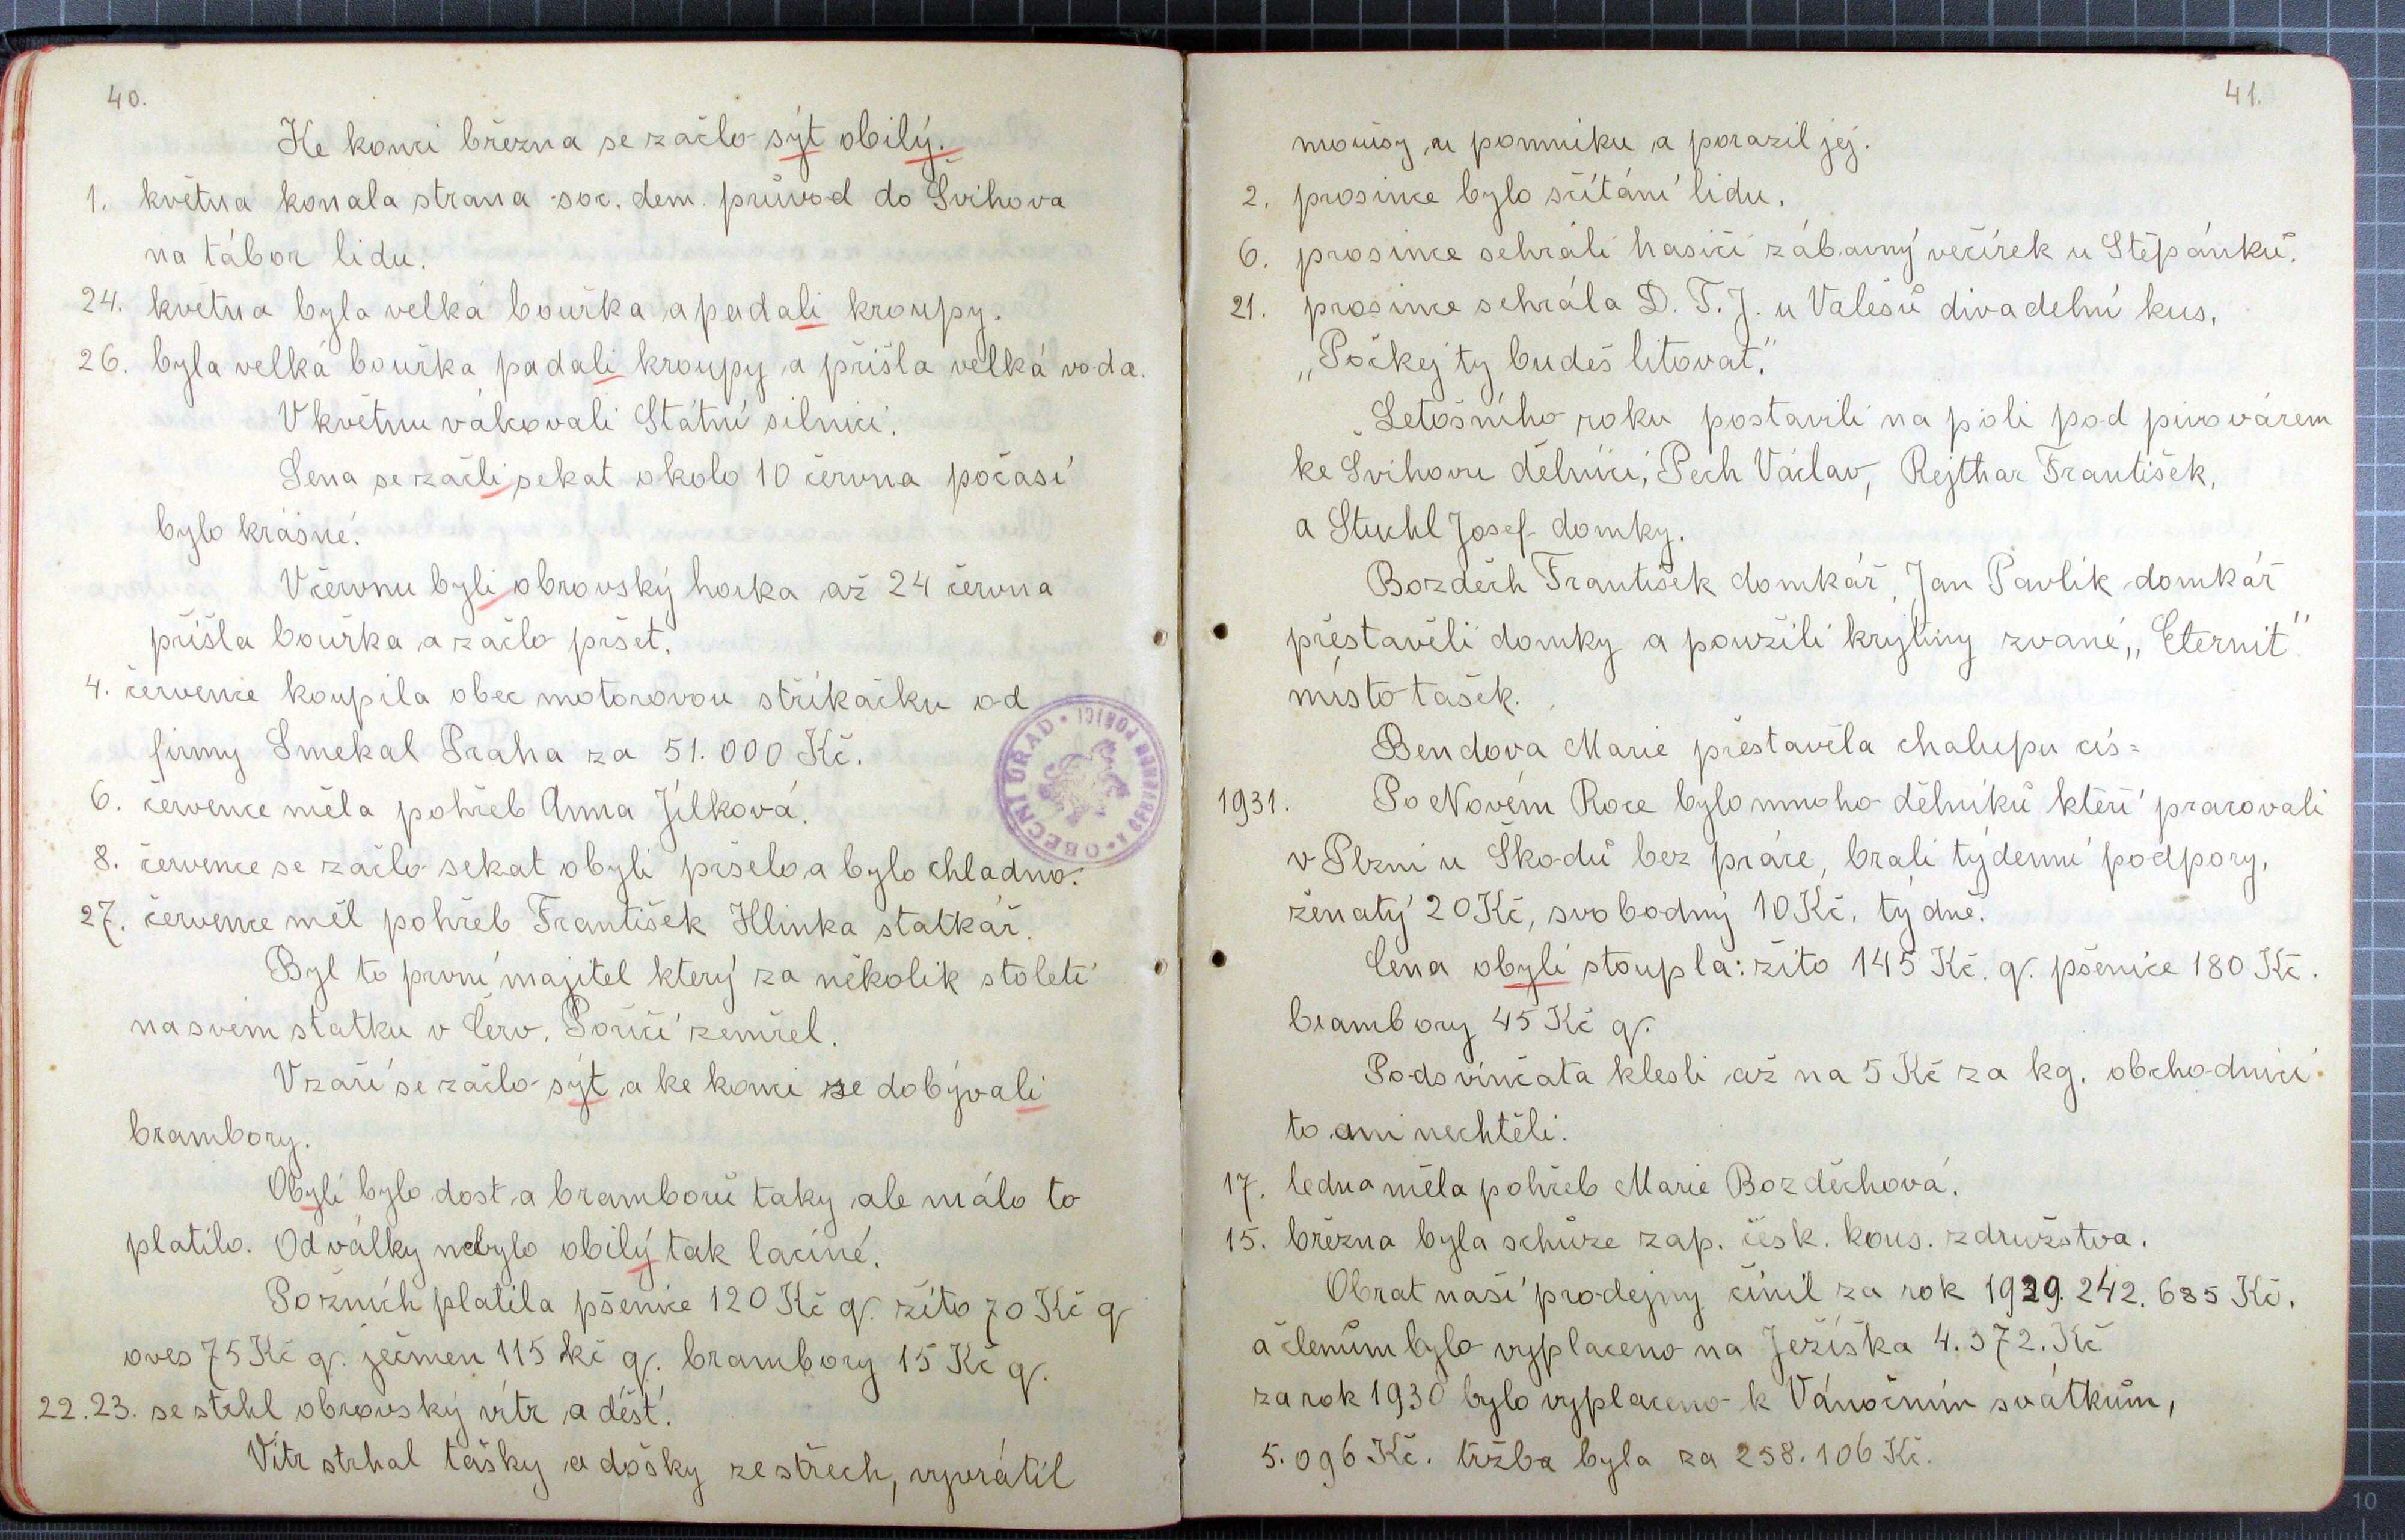 40.
Ke konci března se začlo sýt obilý.
1. května konala strana soc. dem. průvod do Švihova
na tábor lidu.
24. května byla velká bouřka a padali kroupy.
26. byla velká bouřka padali kroupy a přišla velká voda.
V květnu válcovali Státní silnici.
Sena se začli sekat okolo 10 června počasí
bylo krásné.
V červnu byli obrovský horka až 24 června
přišla bouřka a začlo pršet.
4. července koupila obec motorovou stříkačku od
firmy Smekal Praha za 51.000 Kč.
6. července měla pohřeb Anna Jílková.
8. července se začlo sekat obyli pršelo a bylo chladno.
27. července měl pohřeb František Hlinka statkář.
Byl to první majitel který za několik století
na svém statku v Červ. Poříčí zemřel.
V září se začlo sýt a ke konci se dobývali
brambory.
Obylí bylo dost a bramborů taky ale málo to
platilo. Od války nebylo obilý tak laciné.
Po žních platila pšenice 120 Kč q. žito 70 Kč q
oves 75 Kč q. ječmen 115 kč q. brambory 15 Kč q.
22.23. se strhl obrovský vítr a déšť.
Vítr strhal tašky a došky ze střech, vyvrátil
OBECNÍ ÚŘAD
41.
u pomníku a porazil jej.
2. prosince bylo sčítání lidu.
6. prosince sehráli hasiči zábavný večírek u Štěpánků.
21. prosince sehrála D. T. J. u Valešů divadelní kus,
„Počkej ty budeš litovat."
Letošního roku postavili na poli pod pivovárem
ke Švihovu dělníci, Pech Václav, Rejthar František,
a Stuchl Josef domky.
Bozděch František domkář, Jan Pavlík domkář
přestavěli domky a použili krytiny zvané „Eternit"
místo tašek.
Bendova Marie přestavěla chalupu čís=
1931. Po Novém Roce bylo mnoho dělníků kteří pracovali
v Plzni u Škodů bez práce, brali týdenní podpory,
ženatý 20 Kč, svobodný 10 Kč. týdně.
Cena obyli stoupla: žito 145 Kč. q. pšenice 180 Kč.
brambory 45 Kč q.
Podsvinčata klesli až na 5 Kč za kg. obchodníci
to ani nechtěli.
17. ledna měla pohřeb Marie Bozděchová.
15. března byla schůze zap. česk. kons. združstva.
Obrat naší prodejny činil za rok 1929. 242.685 Kč.
a členům bylo vyplaceno na Ježíška 4.372. Kč
za rok 1930 bylo vyplaceno k Vánočním svátkům,
5.096 Kč. tržba byla za 258.106 Kč.
10